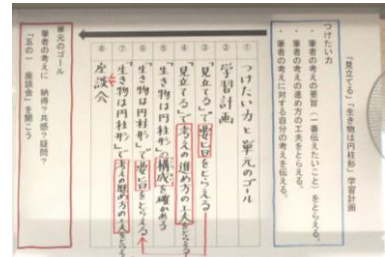 「見立てる」「生き物は円柱形」学習計画
つけたい力
・筆者の考えの要旨（一番伝えたいこと）をとらえる。
・筆者の考えの進め方の工夫をとらえる。
・筆者の考えに対する自分の考えを伝える。
① つけたい力と単元のゴール
② 学習計画
③ 「見立てる」で要旨をとらえる
④ 「見立てる」で考えの進め方の工夫をとらえる
⑤ 「生き物は円柱形」の構成を確かめる
⑥ 「生き物は円柱形」で要旨をとらえる
⑦ 「生き物は円柱形」で考えの進め方の工夫をとらえる
⑧ 座談会
単元のゴール
筆者の考えに 納得？共感？疑問？
「五の一 座談会」を開こう